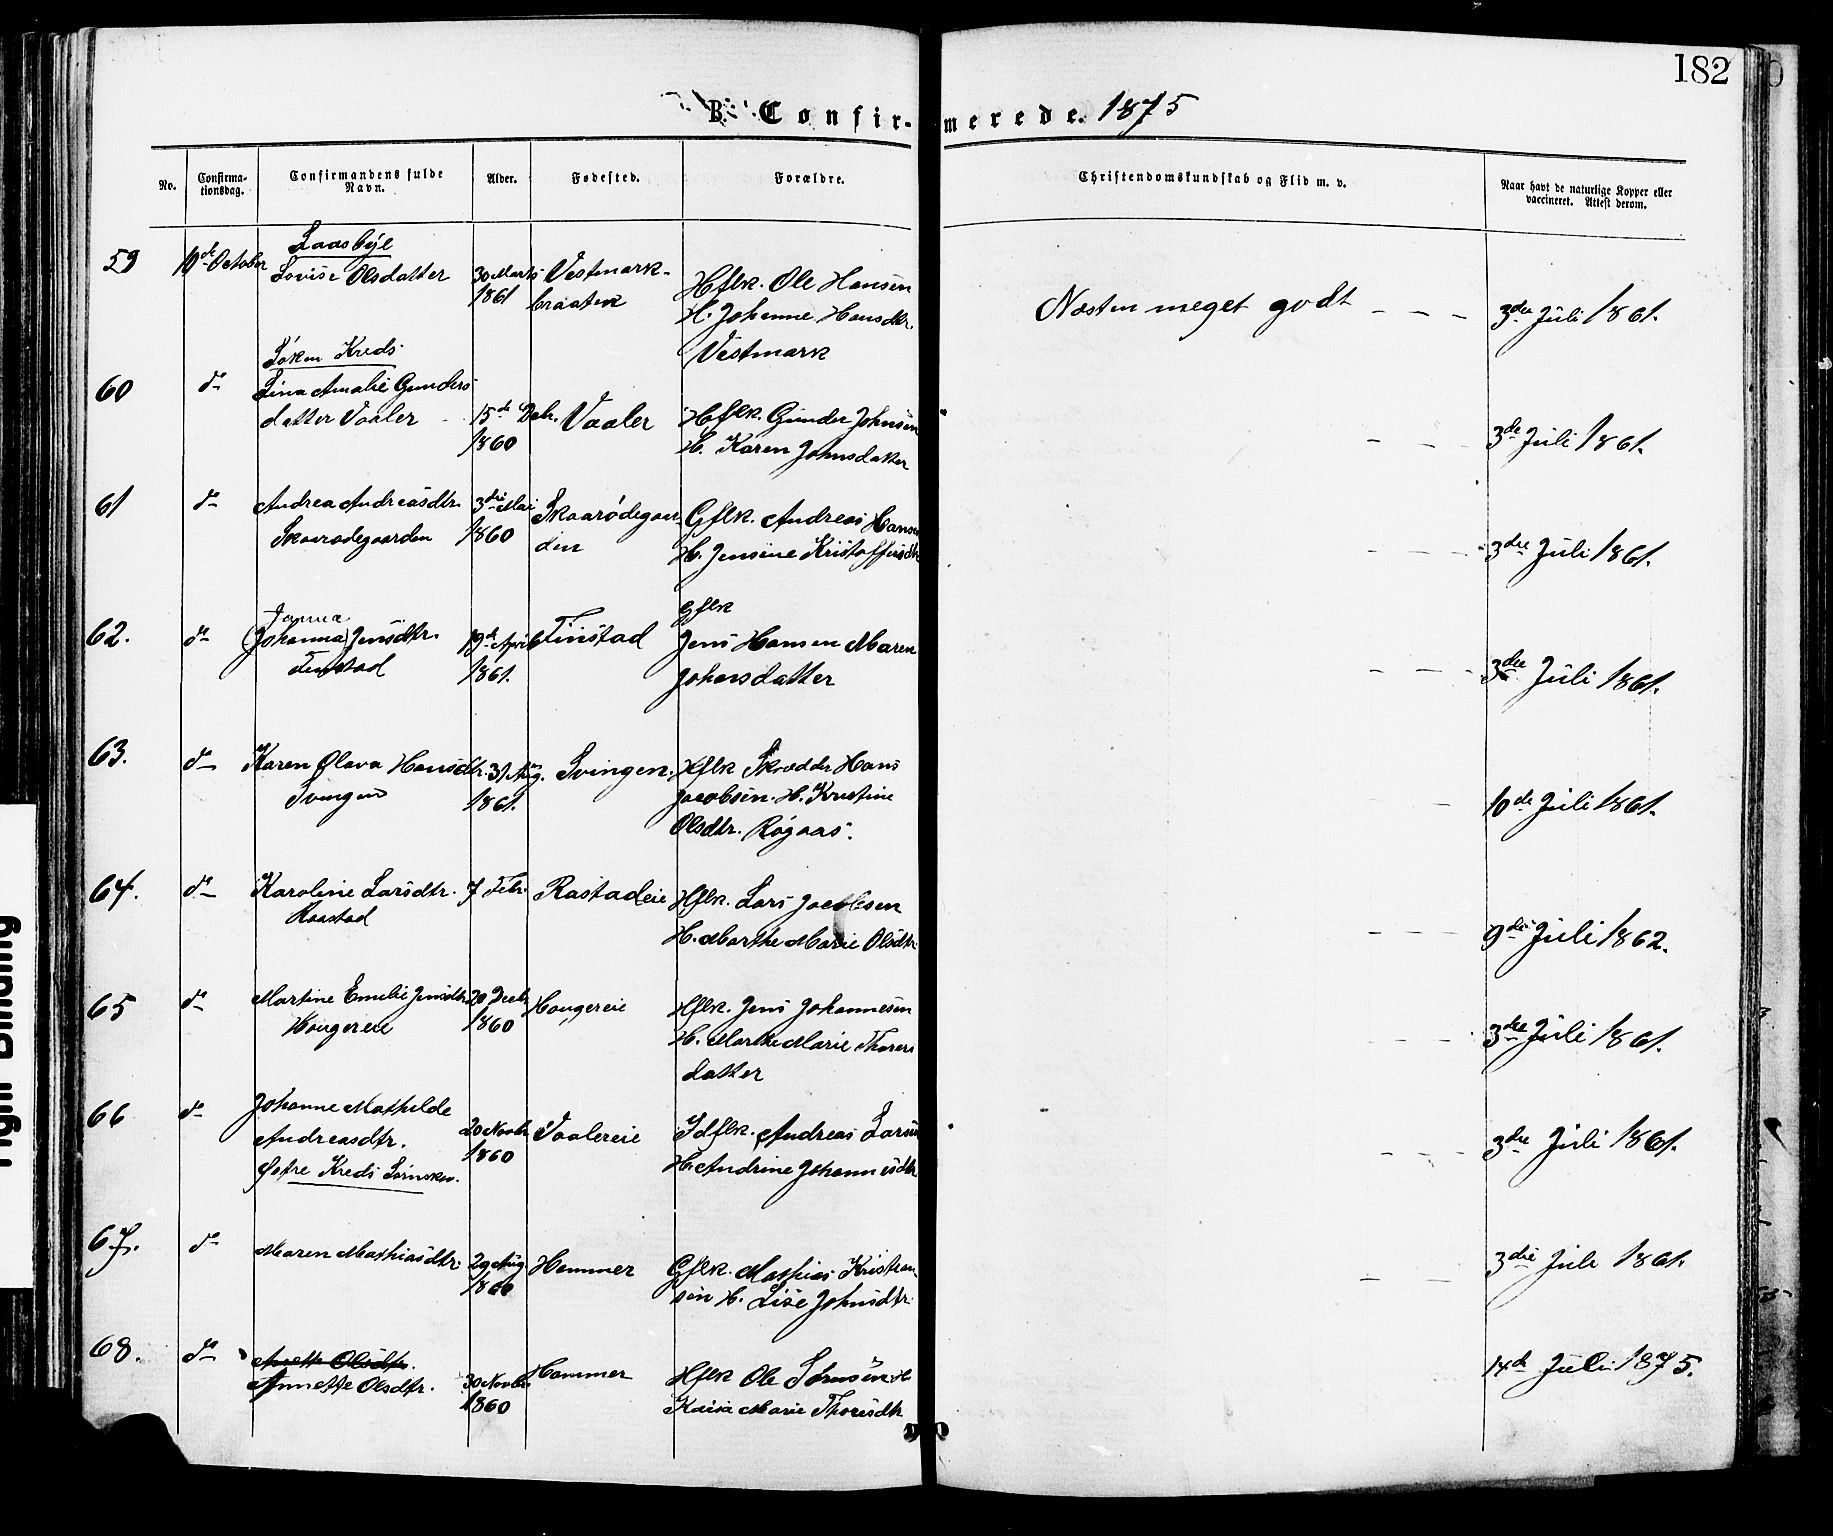 182
B. Confirmerede. 1875
No.
Confirmationsdag.
Confirmandens fulde Navn.
Alder.
Fødested.
Forældre.
Christendomskundskab og Flid m. v.
Naar havt de naturlige Kopper eller vaccineret. Attest derom.
59 October Lovise Olsdatter 30 Marts 1861 Vestmark-braaten Hflk. Ole Hansen H. Johanne Hansdtr. Vestmark Næsten meget godt - - - 3die Juli 1861.
Kreds
60 do Lina Amalie Gundersdatter Vaaler 15de Debr. 1860 Vaaler Hflk. Gunder Johnsen H. Karen Johnsdatter - - - 3die Juli 1861.
61 do Andrea Andreasdtr. Skaarødegaarden 3die Mai 1860 Skaarødegaarden Gflk. Andreas Hansen H. Jensine Kristoffersdtr - - - 3die Juli 1861.
62. do Janna (Johanna) Jensdtr. Finstad 19de April 1861. Finstad Gflk Jens Hansen Maren Johansdatter - - - 3die Juli 1861.
63. do Karen Olava Hansdtr. Svingen 31 Aug. 1861. Svingen. Hflk Skrædder Hans Jacobsen. H. Kristine Olsdtr. Røgaas. - 10de Juli 1861.
64. do Karoline Larsdtr. Raastad 7 Febr. Rastadeie Hflk. Lars Jacobsen H. Marthe Marie Olsdtr - - - 9de Juli 1862.
65 do Martine Emilie Jensdtr Haugereie 20 Decbr 1860 Haugereie Hflk. Jens Johannesen H. Marthe Marie Thoresdatter - - - 3die Juli 1861.
66 do Johanne Mathilde Andreasdtr. 20 Novbr 1860 Vaalereie Idflk. Andreas Larsen H. Andrine Johannesdtr - - - 3die Juli 1861.
Østre Kreds
67. do Maren Mathiasdtr. 29 Aug. 1860 Hammer Gflk. Mathias Kristiansen H. Lise Johnsdtr. - - 3die Juli 1861.
68. do Anette Olsdtr. Annette Olsdtr. 30 Novbr 1860 Hammer Hflk Ole Sørensen H Marie Thoresdtr 14de Juli 1875.